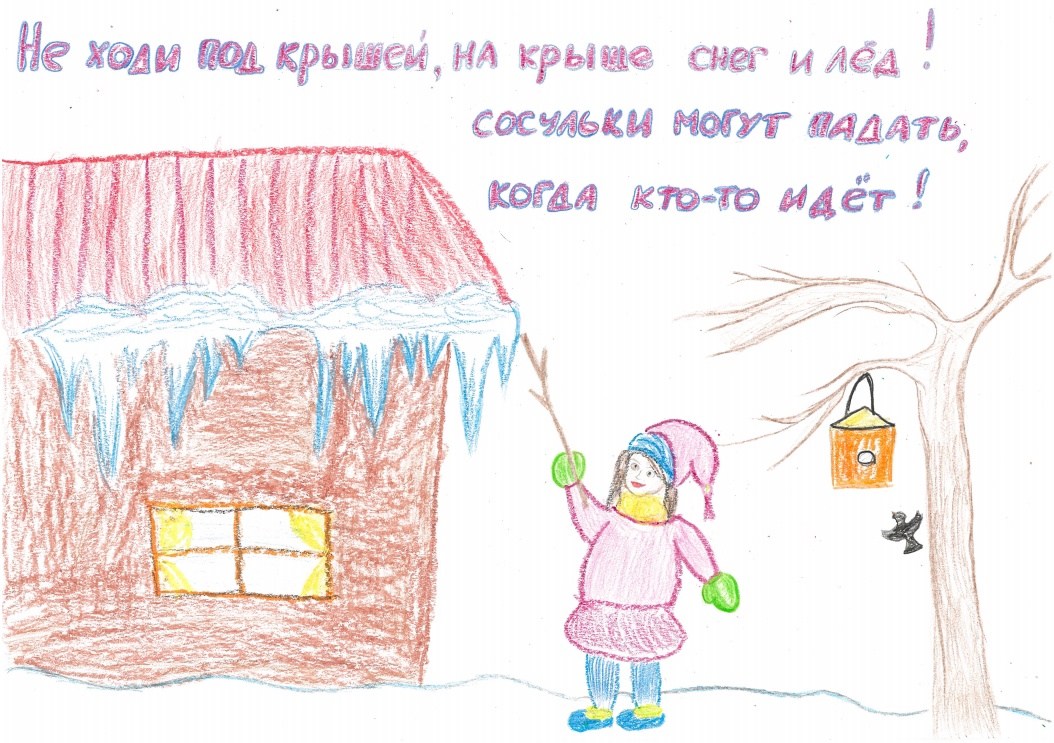 Не ходи под крышей, на крыше снег и лёд!
сосульки могут падать,
когда кто-то идёт!